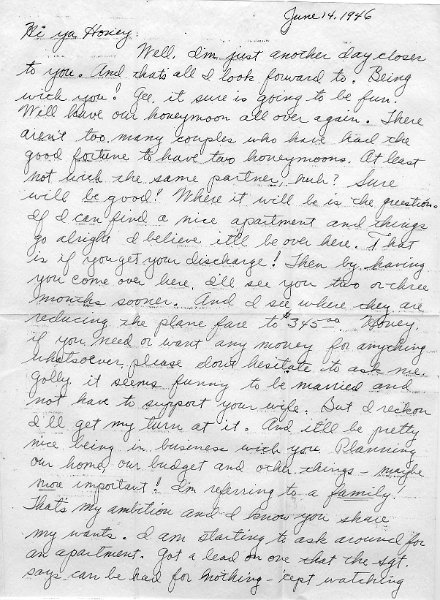 June 14, 1946
Hi ya Honey:
Well. I'm just another day closer
to you. And thats all I look forward to. Being
with you! Gee, it sure is going to be fun.
We'll have our honeymoon all over again. There
aren't too many couples who have had the
good fortune to have two honeymoons. At least
not with the same partner, huh? Sure
will be good! Where it will be is the question.
If I can find a nice apartment and things
go alright I believe it'll be over here. That
is if you get your discharge! Then by having
you come over here, I'll see you two or three
months sooner. And I see where they are
reducing the plane fare to $345.00. Honey,
if you need or want any money for anything
whatsoever, please don't hesitate to ask me.
Golly it seems funny to be married and
not have to support your wife. But I reckon
I'll get my turn at it. And it'll be pretty
nice being in business with you. Planning
our home, our budget and other things - maybe
more important! I'm referring to a family!
That's my ambition and I know you share
my wants. I am starting to ask around for
an apartment. Got a lead on one that the sgt.
says can be had for nothing - 'cept watching